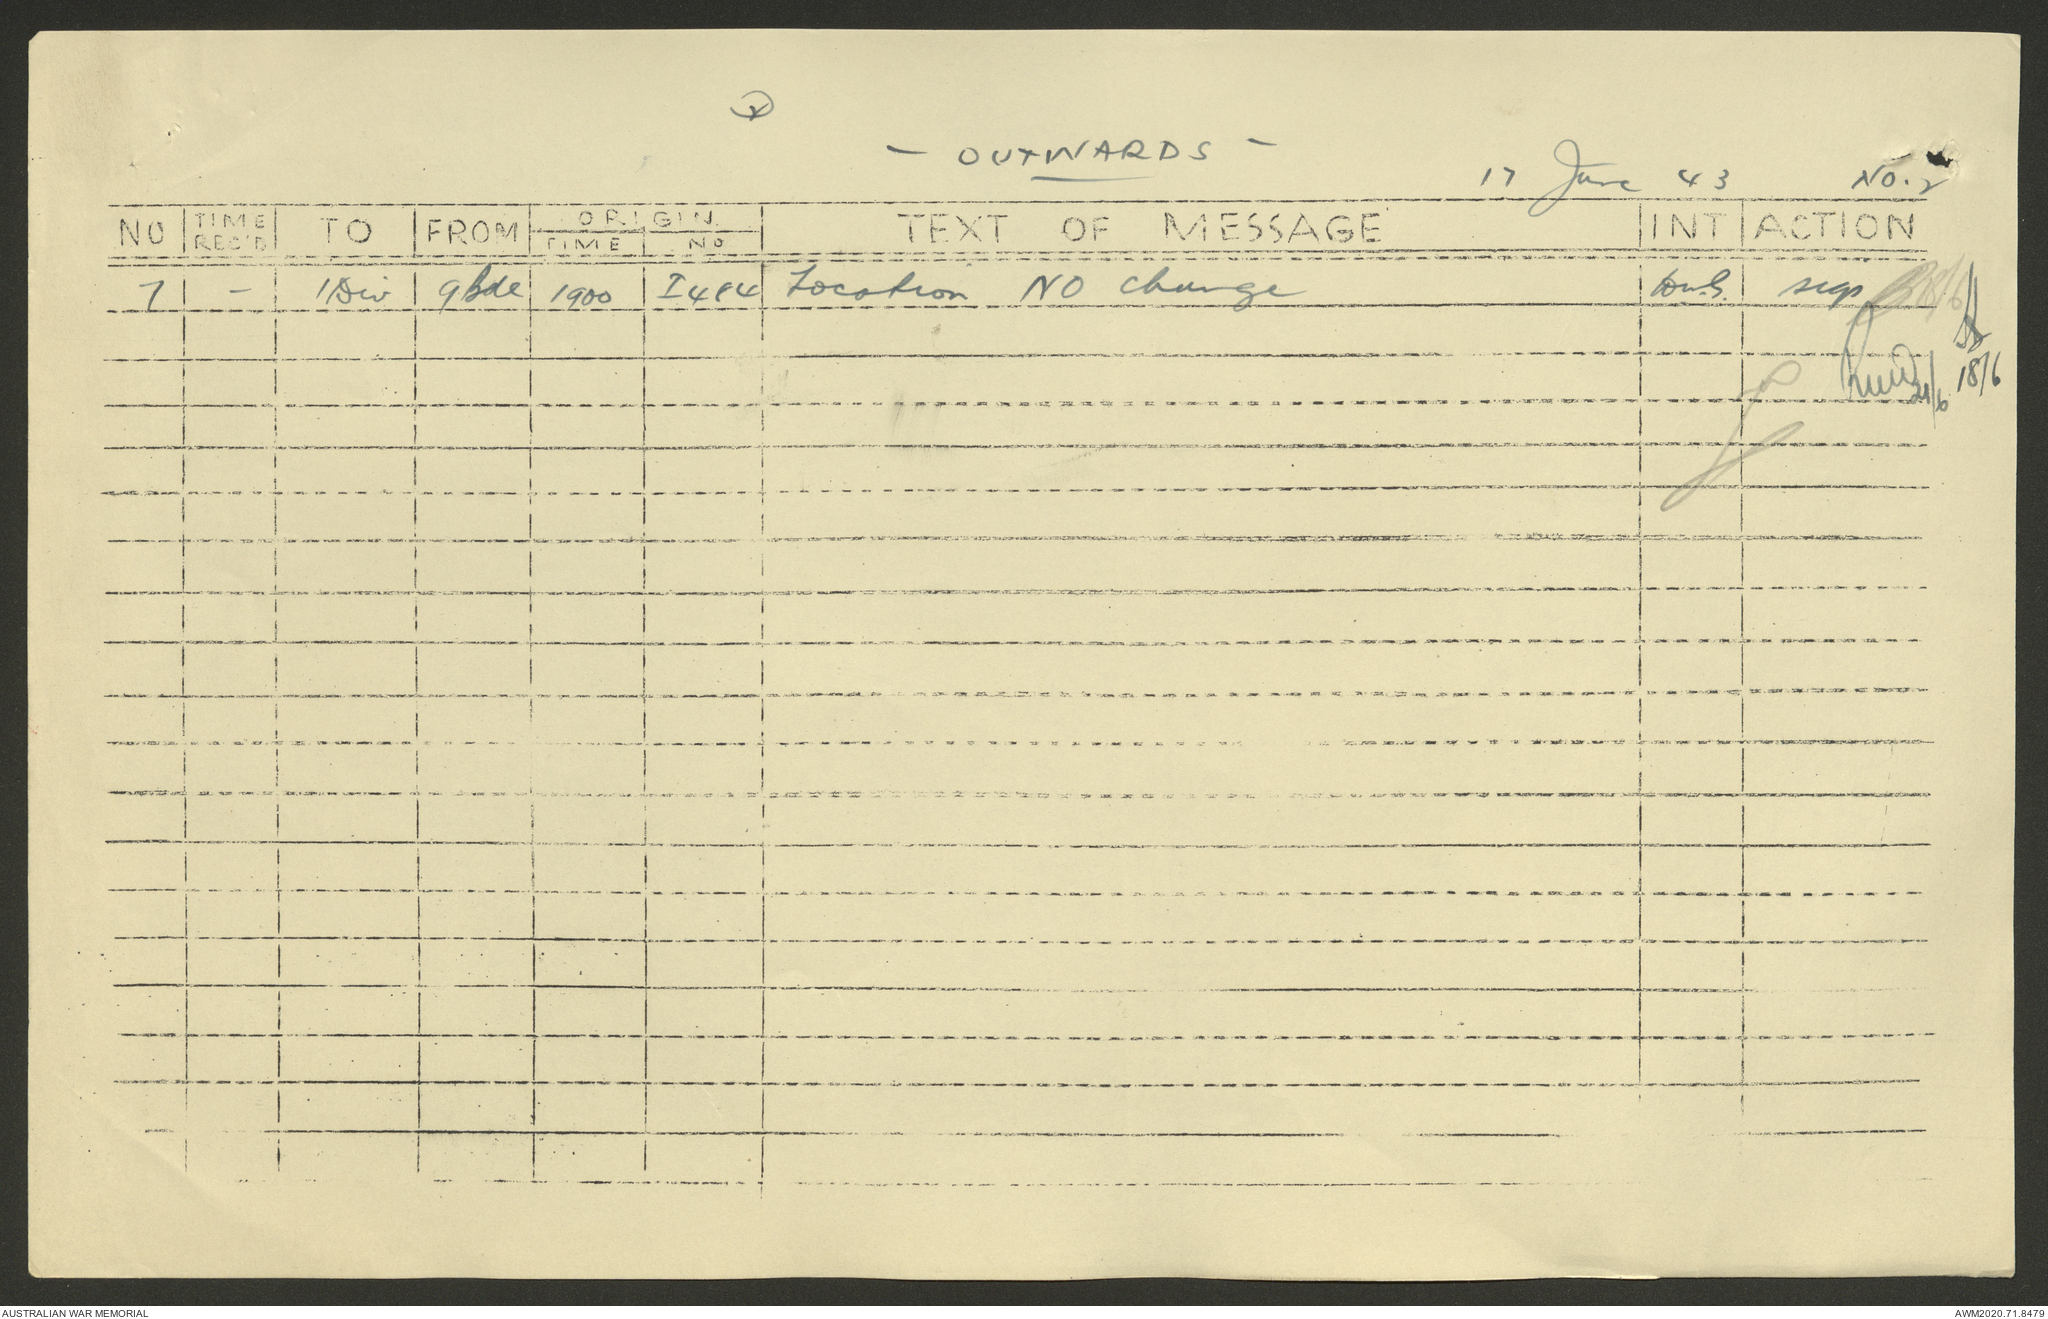 - OUTWARDS -
17 June 43 No. 2
NO TIME REC'D TO FROM ORIGIN TIME NO TEXT OF MESSAGE INT ACTION
7 - 1 Div 9 Bde 1900 I484 Location NO change sigs
18/6
21/6 18/6
AUSTRALIAN WAR MEMORIAL AWM2020.71.8479